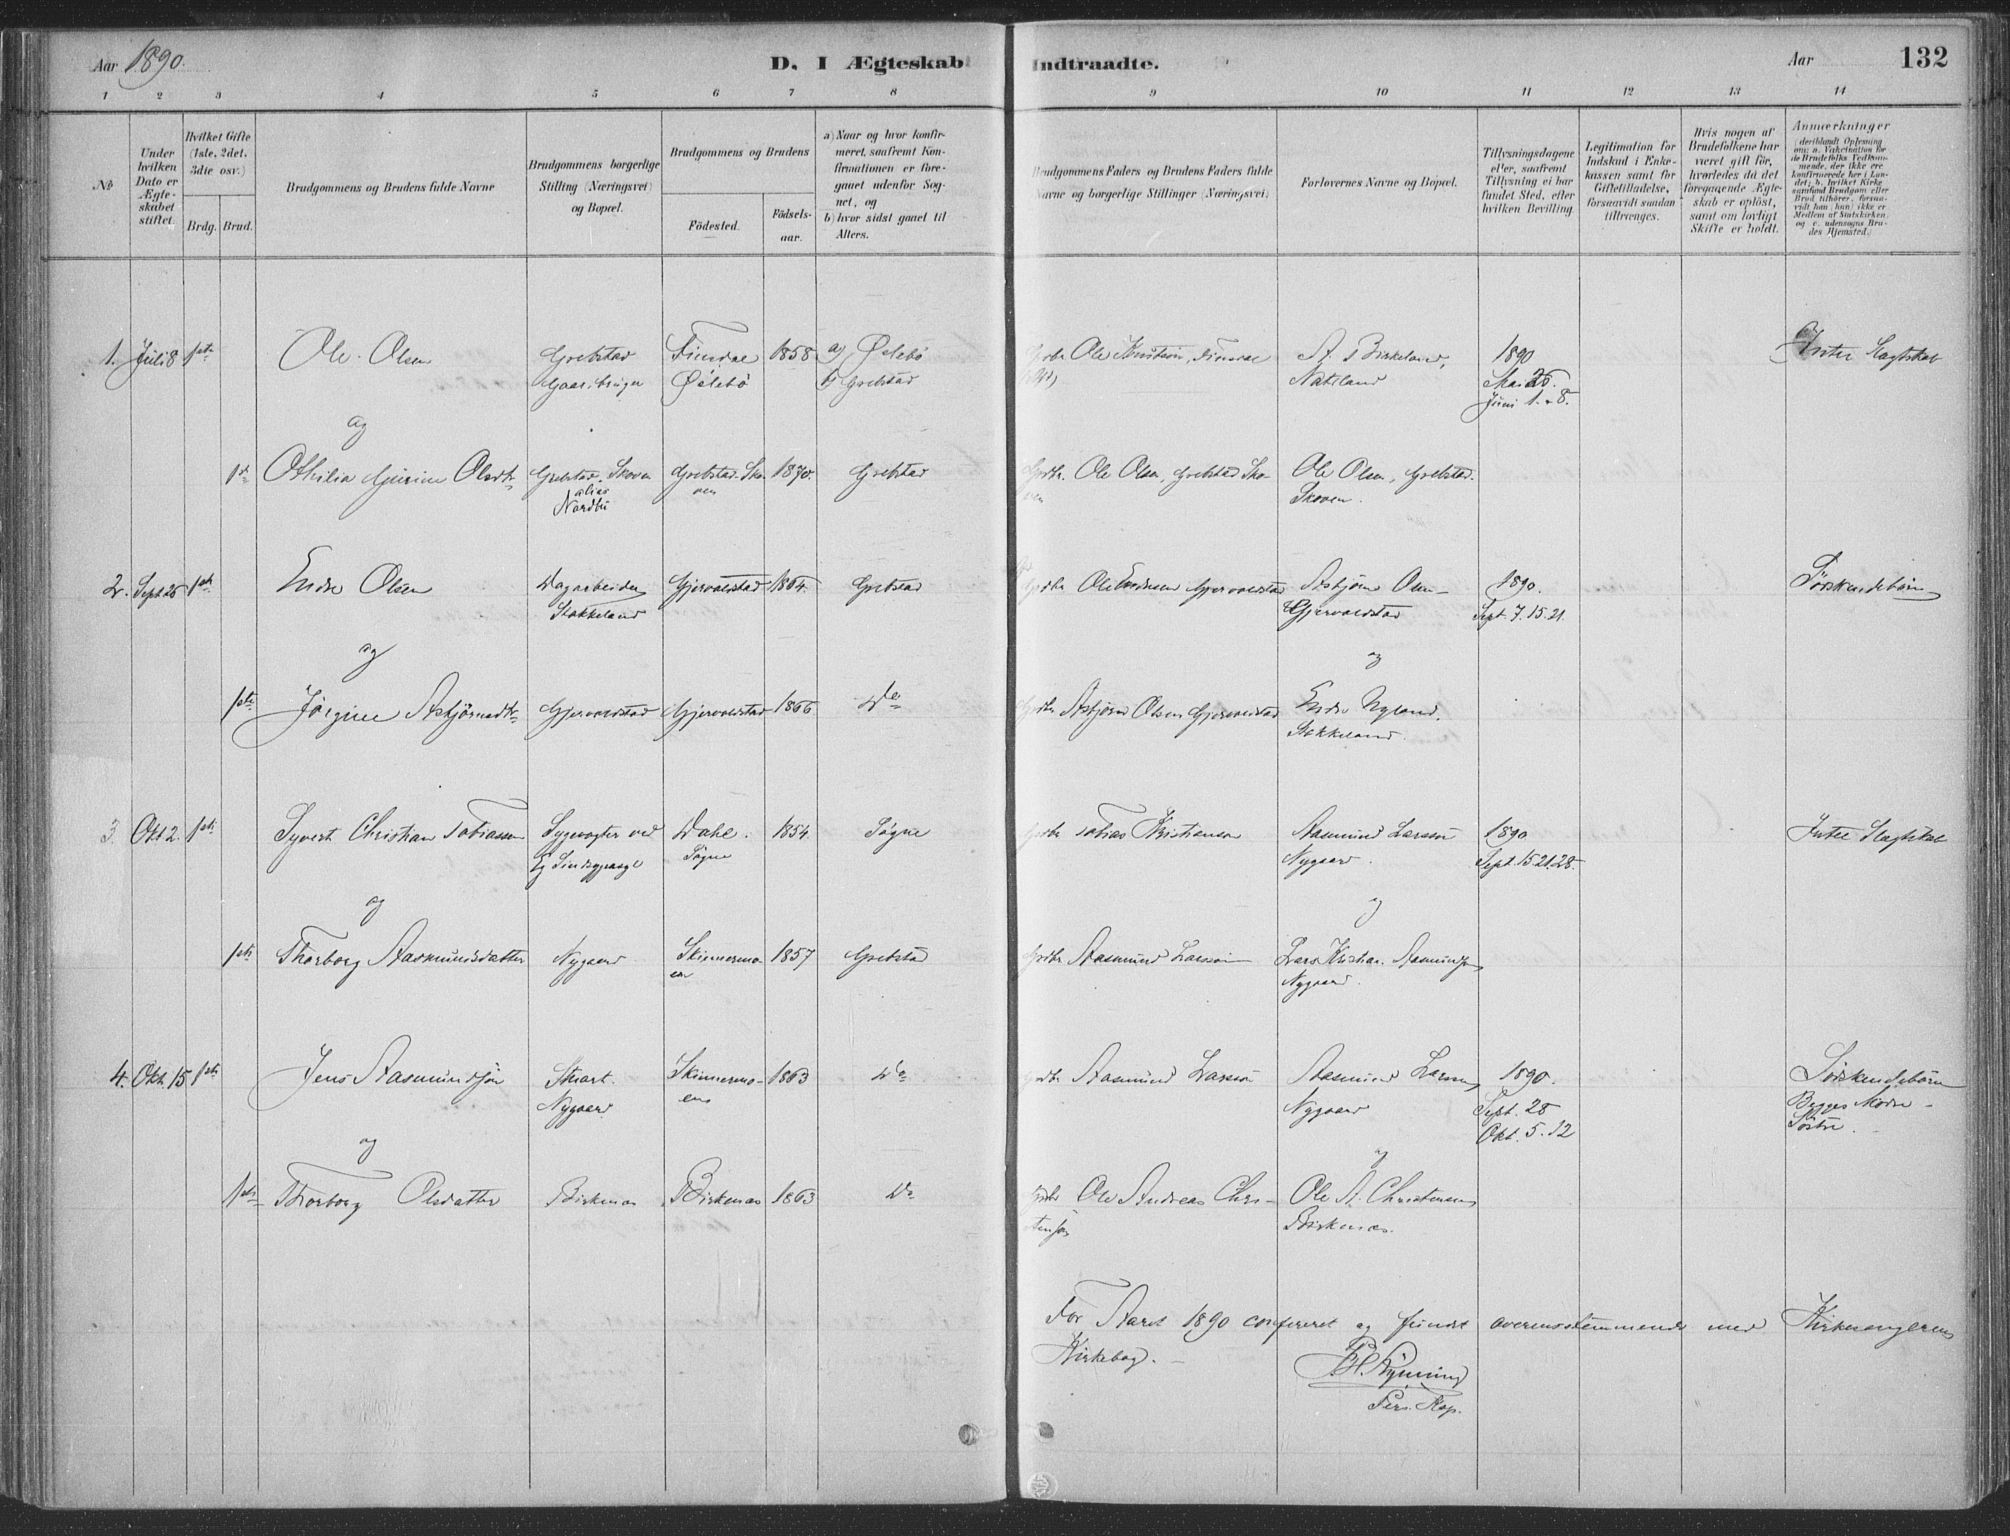 Aar 1890.
D. I Ægteskab Indtraadte.
Aar
132
1 2 3 4 5 6 7 8 9 10 11 12 13 14
No
Under hvilken Dato er Ægteskabet stiftet.
Hvilket Gifte (1ste, 2det, 3die osv.)
Brdg. Brud.
Brudgommens og Brudens fulde Navne
Brudgommens borgerlige Stilling (Næringsvei) og Bopæl.
Brudgommens og Brudens
Födested.
Födselsaar.
a) Naar og hvor konfirmeret, saafremt Konfirmationen er foregaaet udenfor Sognet, og
b) hvor sidst gaaet til Alters.
Brudgommens Faders og Brudens Faders fulde Navne og borgerlige Stillinger (Næringsvei)
Forlovernes Navne og Bopæl.
Tillysningsdagene eller, saafremt Tillysning ei har fundet Sted, efter hvilken Bevilling.
Legitimation for Indskud i Enkekassen samt for Giftetilladelse, forsaavidt saadan tiltrænges.
Hvis nogen af Brudefolkene har været gift för, hvorledes da det foregaaende Ægteskab er oplöst, samt om lovligt Skifte er holdt.
Anmærkninger
(deriblandt Oplysning om: a. Vakcination for de Brudefolks Vedkommende, der ikke ere konfirmerede her i Landet; b. hvilket Kirkesamfund Brudgom eller Brud tilhörer, forsaavidt han (hun) ikke er Medlem af Statskirken, og c. udensogns Brudes Hjemsted.)
1. Juli 8 1ste Ole Olsen
Grebstad
Gaardbruger
Finsdal
Øslebø
1858
a) Øslebø
b) Grebstad
Grdbr Ole Knutsen, Finsdal
A. Birkeland,
Nateland
1890
Mai 25.
Juni 1. 8.
Intet Slægtskab
og
1st Othilia Gurine Olsdtr
Grebstad Skoven
alias
Nordbü
Grebstad Skoven
1870.
Grebstad
Grdbr. Ole Olsen, Grebstad Skoven
Ole Olsen, Grebstad
Skoven.
2. Sept 25 1ste Endre Olsen
Dagarbeider
Stokkeland
Gjervoldstad
1864.
Grebstad
Grdbr Ole Endresen Gjervoldstad
Asbjørn Olsen
Gjervoldstad
1890.
Sept. 7. 15. 21.
Sørskendebørn
og
1ste Jørgine Asbjørnsdtr
Gjervoldstad
Gjervoldstad
1866
Do
Grdbr Asbjørn Olsen Gjervoldstad
og
Endre Nyland,
Stokkeland.
3. Okt 2. 1ste Syvert Christian Tobiassen
Sygevogter ved
Eg Sindsygeasyl
Dahl.
Søgne
1854.
Søgne
Grdbr Tobias Kristiansen
Aasmund Larssen
Nygaard.
1890
Sept. 15 21. 28.
Intet Slægtskab
og
1ste Thorborg Aasmundsdatter
Nygaard
Skinnermoen
1857
Grebstad
Grdbr Aasmund Larssen
og
Lars Kristian Aasmundsen
Nygaard.
4. Okt. 15 1ste Jens Aasmundsøn
Nygaard
Skinnermoen
1863
Do
Grdbr Aasmund Larssøn
Aasmund Larsen
Nygaard
1890.
Sept. 28
Okt. 5. 12
Sørskendebørn
Begges Mødre
Søstre.
og
1ste Thorborg Olsdatter
Birkenas
Birkenas
1863
Do
Grdbr Ole Andreas Christensen
og
Ole A. Christensen
Birkenæs.
For Aaret 1890 confereret og fundet overensstemmende med Kirkesangerens
Kirkebog.
Pers. Kap.